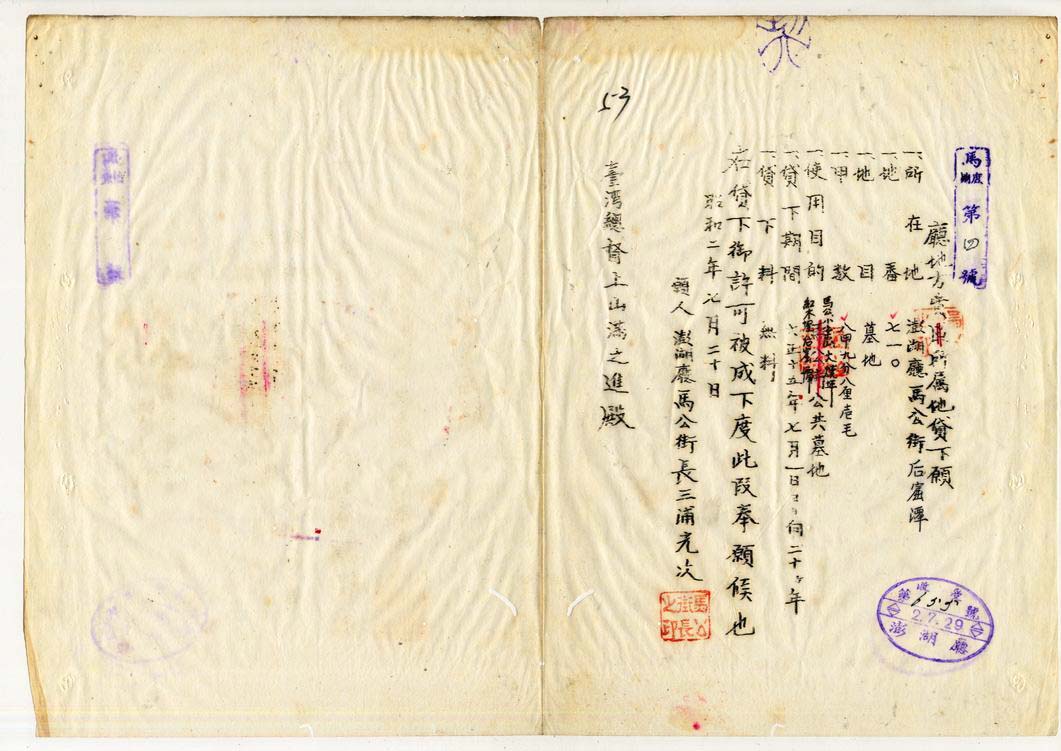 第四號
廳地方費所属地貸下願
一、所在地 澎湖廳馬公街后窟潭
一、地番 七一〇
一、地目 墓地
一、甲數 八甲九分八厘壱毛
一、使用目的 公共墓地
一、貸下期間 大正十五年七月一日ヨリ向二十ヶ年
一、貸下料 無料
右貸下御許可被成下度此段奉願候也
昭和二年七月二十日
願人 澎湖廳馬公街長三浦充次
馬公街長之印
臺湾總督上山滿之進殿
53
第 號
2.7.29
澎湖廳